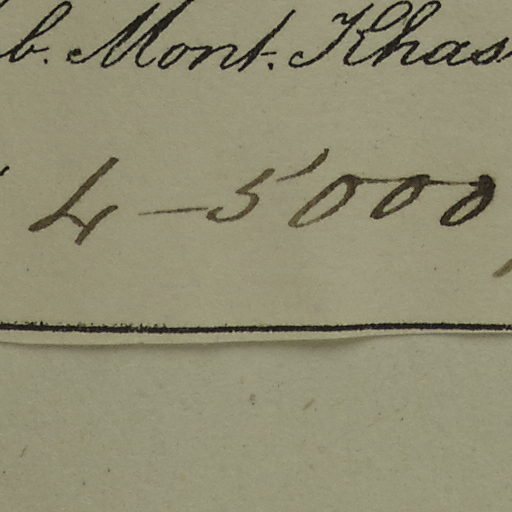 b. Mont. Khas
4-5000